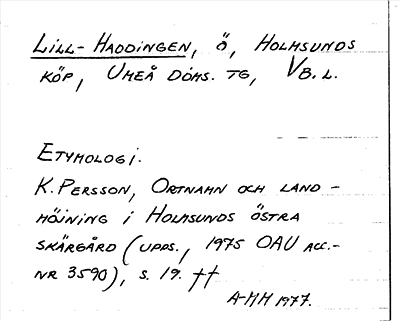 LILL-HADDINGEN, Ö, HOLMSUNDS
KÖP, UMEÅ DOMS. TG, VB. L.
ETYMOLOGI.
K. PERSSON, ORTNAMN OCH LAND-
HÖJNING I HOLMSUNDS ÖSTRA
SKÄRGÅRD (UPPS., 1975 OAU ACC.-
NR 3590), S. 19. ††
A-MM 1977.